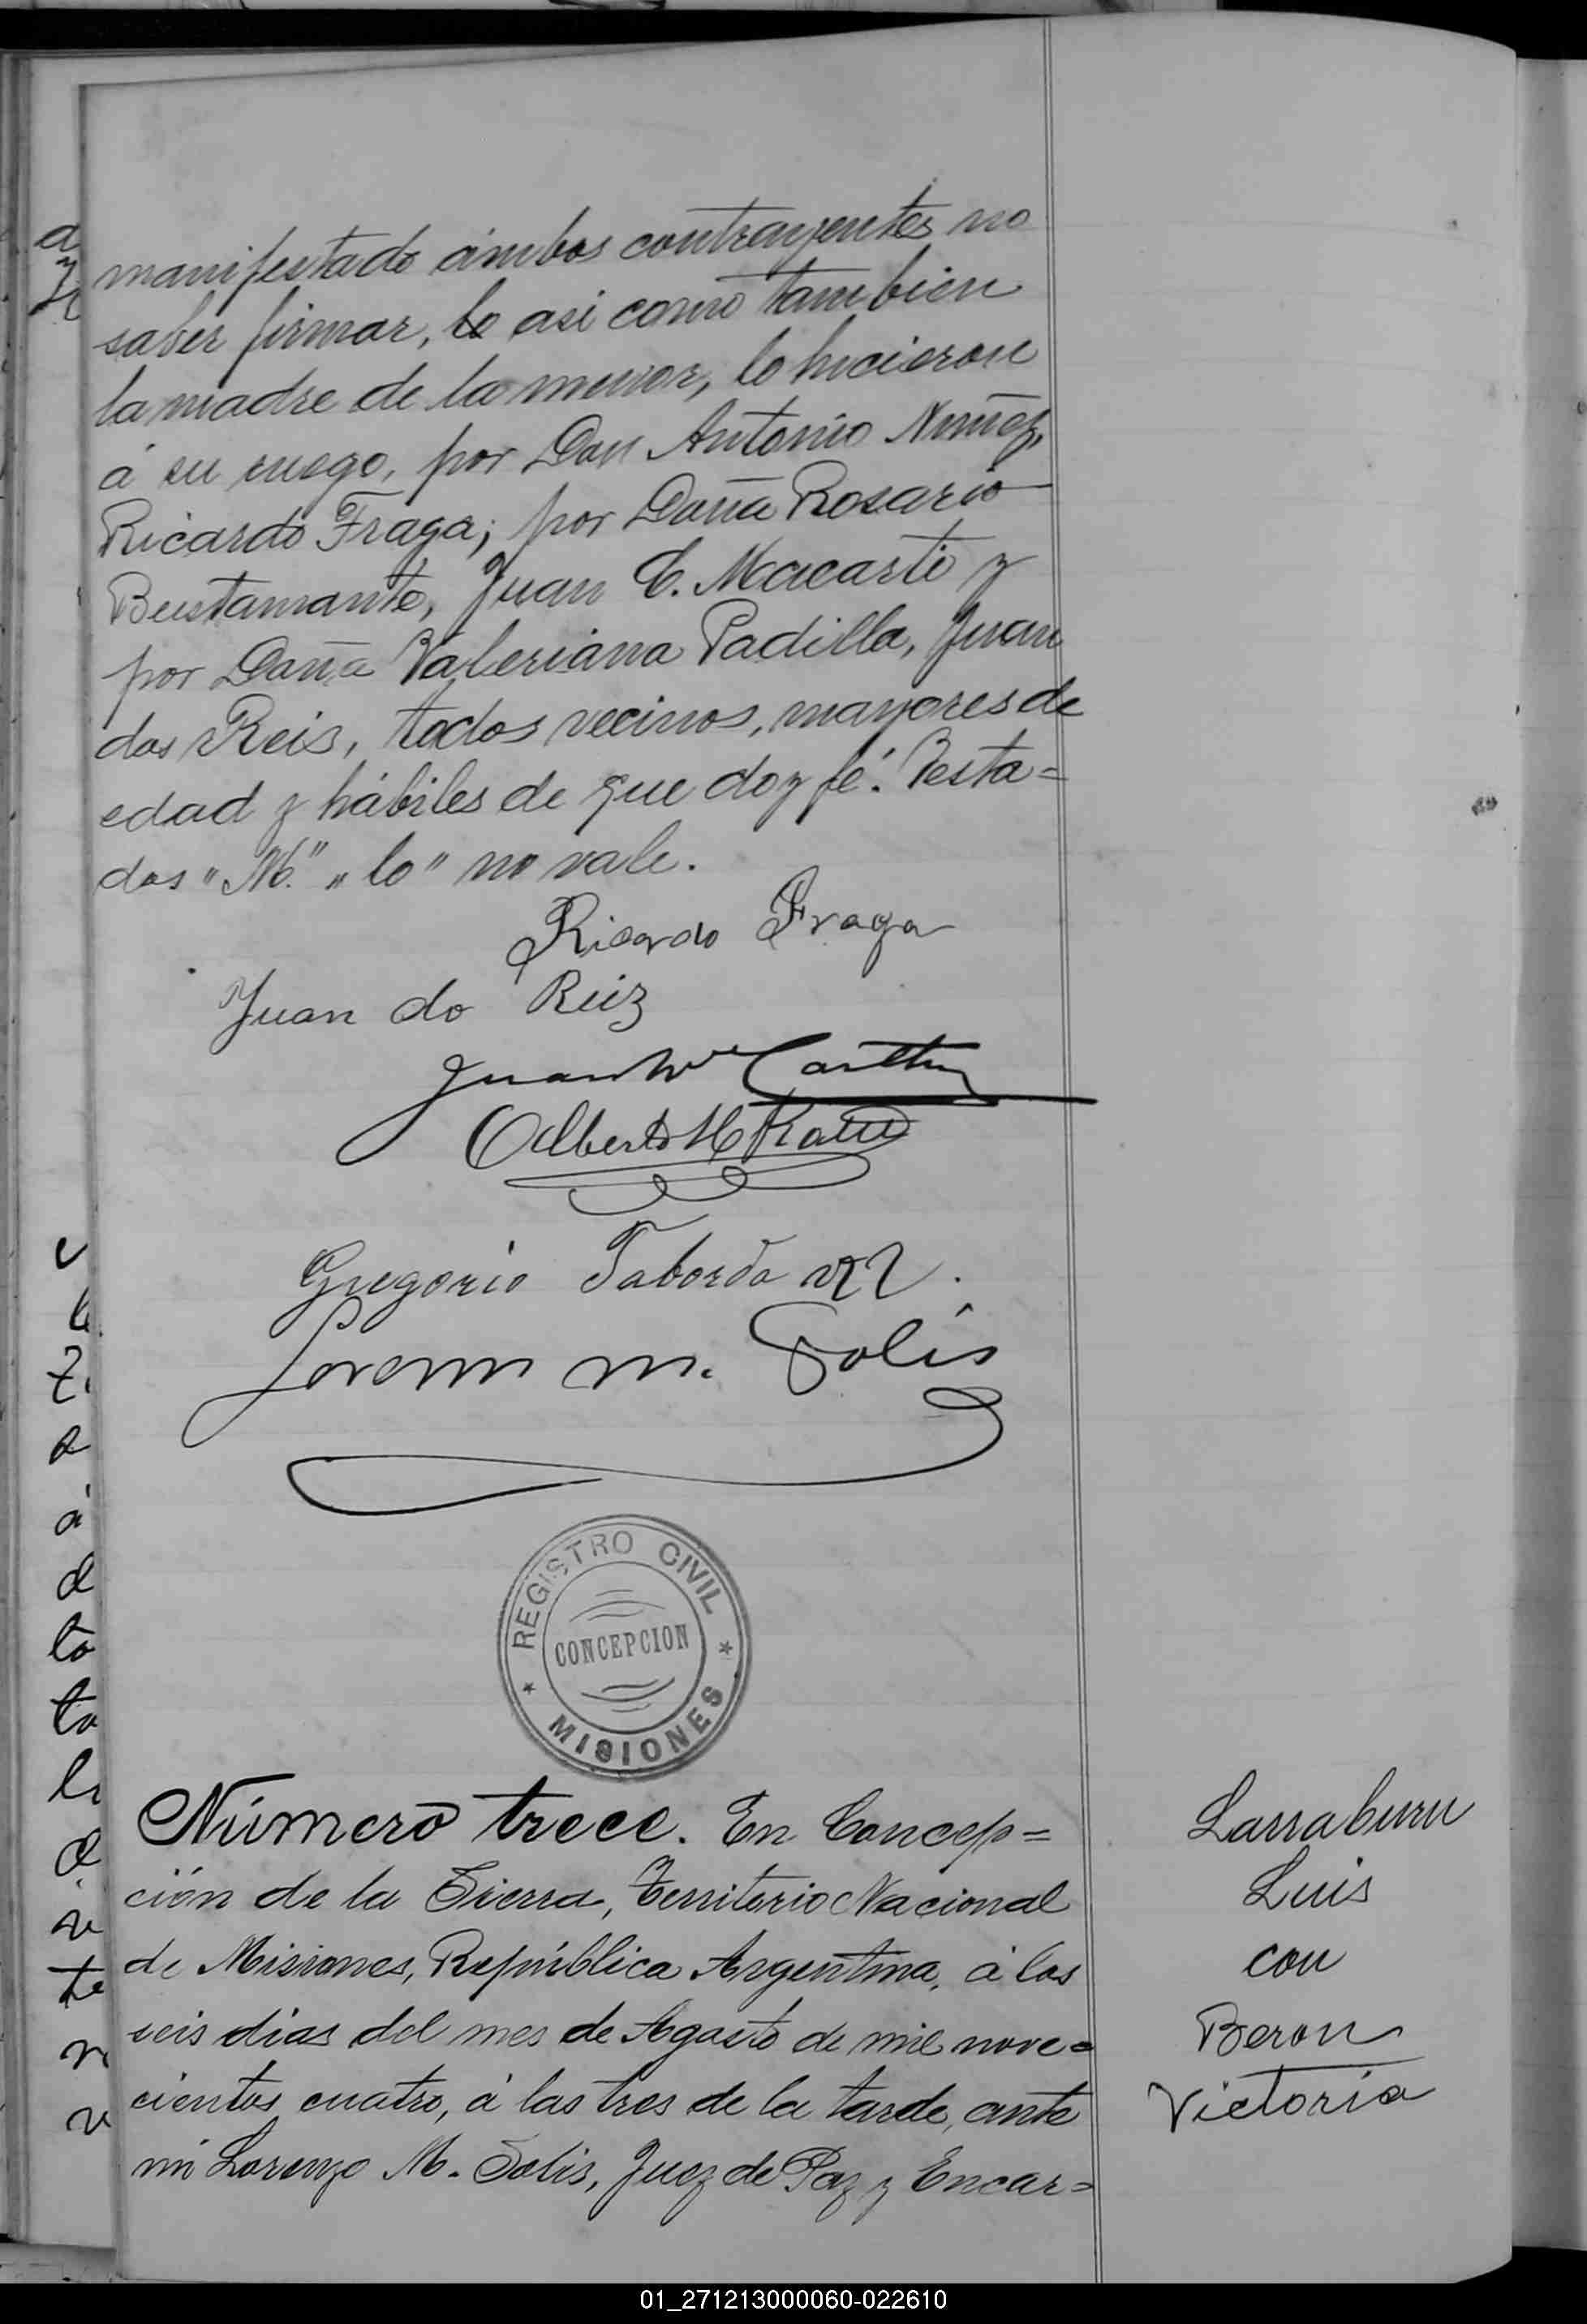 manifestado ámbos contrayentes no
saber firmar, lo asi como tambien
la madre de la menor, lo hicieron
á su ruego, por Don Antonio Nuñez,
Ricardo Fraga; por Doña Rosario
Bustamante, Juan C. Macarti y
por Doña Valeriana Padilla, Juan
dos Reis, todos vecinos, mayores de
edad y hábiles de que doy fé. Testa=
dos "M." "lo" no vale.
Ricardo Fraga
Juan do Reiz
Juan Mc Carthy
Alberto M
Gregorio Taborda
Lorenzo M. Solis
REGISTRO CIVIL
CONCEPCION
MISIONES
Número trece. En Concep=
ción de la Sierra, Territorio Nacional
de Misiones, República Argentina, á los
seis dias del mes de Agosto de mil nove=
cientos cuatro, á las tres de la tarde, ante
mi Lorenzo M. Solis, Juez de Paz y Encar=
Larraburu
Luis
con
Beron
Victoria
01_271213000060-022610